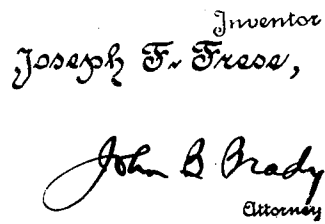 Inventor
Joseph F. Frese,
John B Brady
Attorney